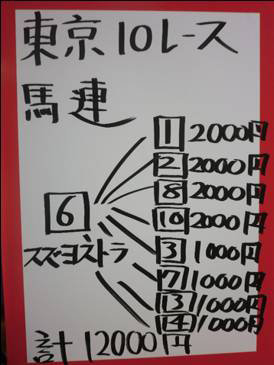 東京10レース
馬連
1 2000円
2 2000円
8 2000円
10 2000円
6
スズヨストラ
3 1000円
7 1000円
13 1000円
14 1000円
計12000円